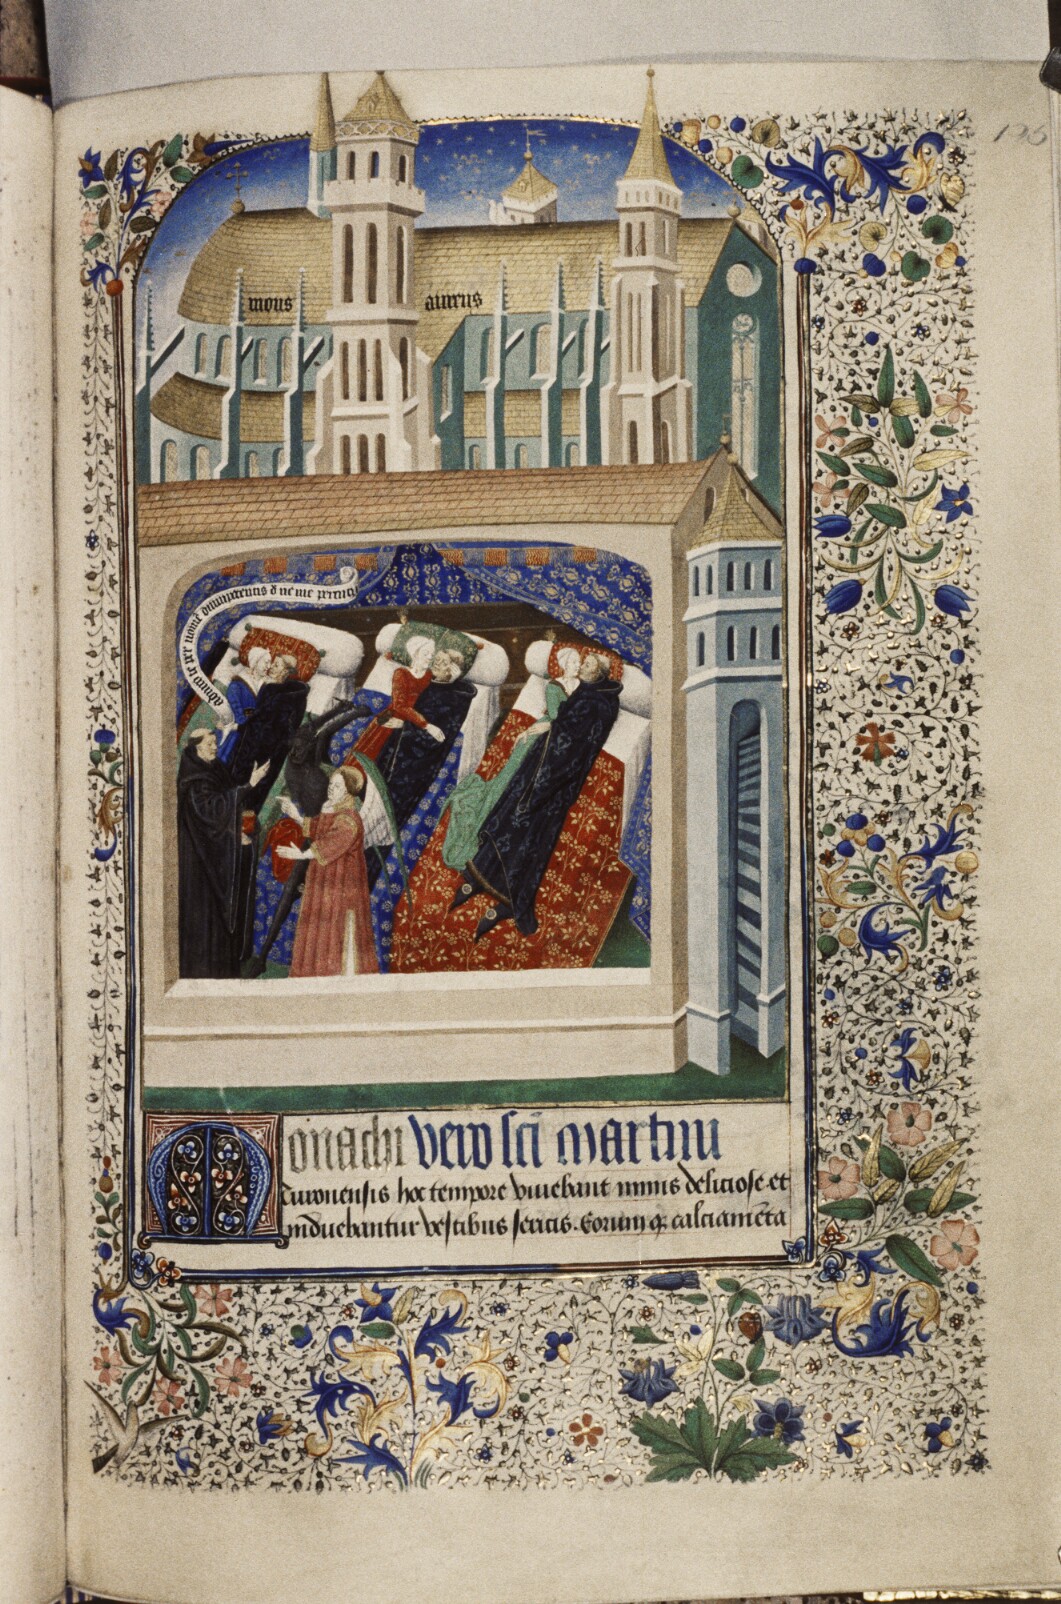 126
mons aureus
adiuro te per nomen omnipotentis d ne me perimas
Monachi vero sci martini
turonensis hoc tempore viuebant nimis deliciose et
induebantur vestibus sericis. Eorumq calciameta